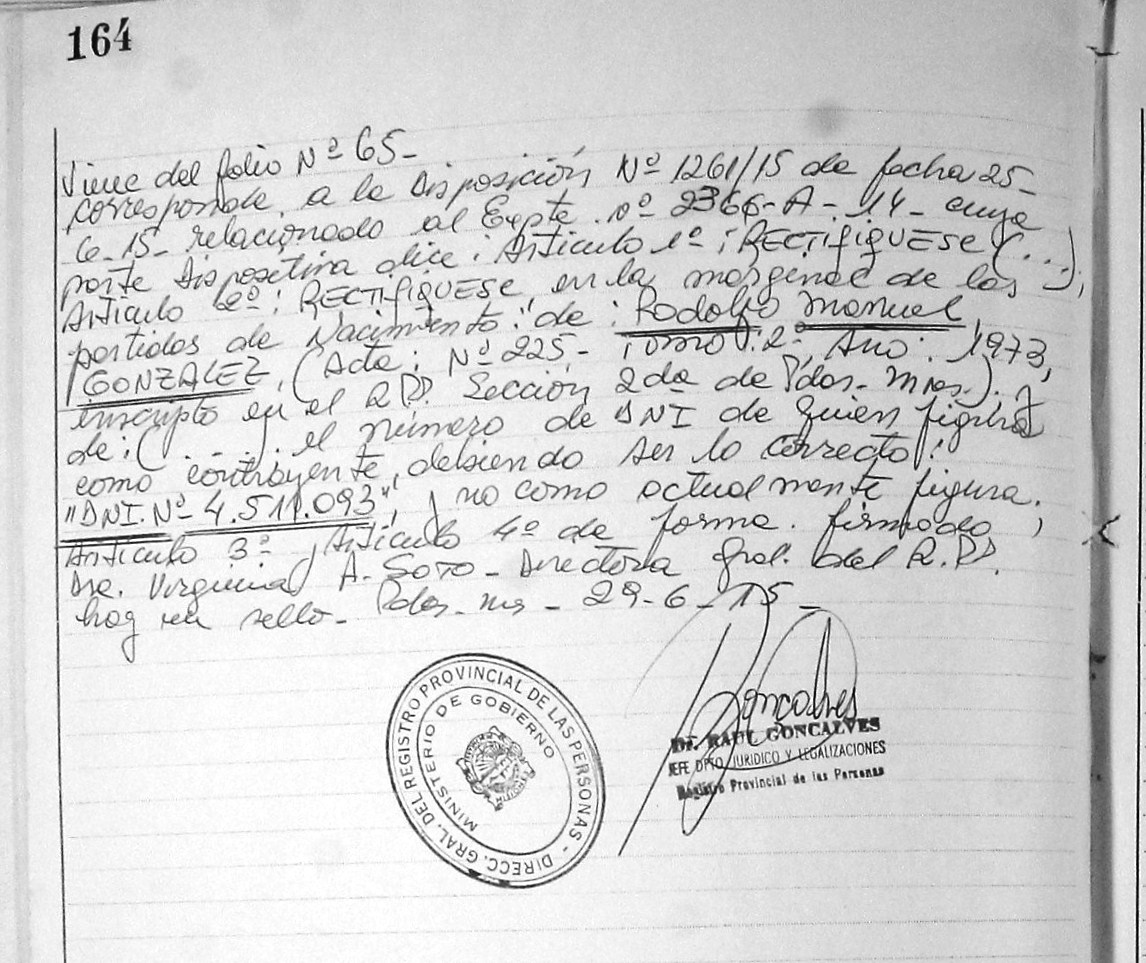 164
Viene del folio Nº 65-
corresponde a la Disposición Nº 1261/15 de fecha 25-
6-15- relacionado al Expte. nº 2366-A-14- cuya
parte dispositiva dice: Artículo 1º: RECTIFIQUESE (...);
Artículo 2º: RECTIFIQUESE en la marginal de las
partidas de Nacimiento: de: Rodolfo Manuel
GONZALEZ, (Acta: Nº 225- Tomo: 2º, Año: 1973,
inscripto en el R.P.P. Sección 2da de Pdas. Mnes.) y
de: (......) el número de DNI de quien figura
como contrayente, debiendo ser lo correcto:
"DNI. Nº 4.511.093", y no como actualmente figura.
Artículo 3º, Artículo 4º de forma. firmado,
Dra. Virginia A. Soto- Directora Gral. del R.P.P.
hay un sello- Pdas- ms- 29-6-15-
Goncalves
Dr. RAUL GONCALVES
JEFE DPTO JURIDICO Y LEGALIZACIONES
Registro Provincial de las Personas
DIRECC. GRAL. DEL REGISTRO PROVINCIAL DE LAS PERSONAS -
MINISTERIO DE GOBIERNO
MISIONES